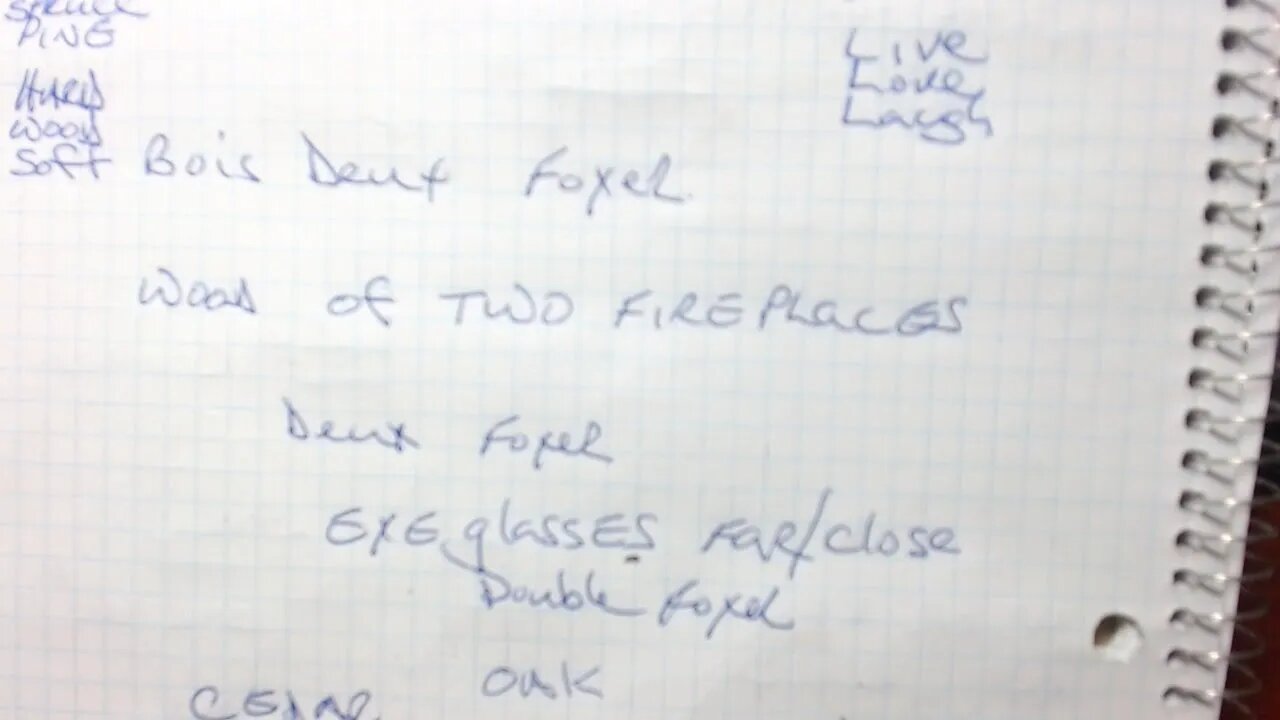 SPRUCE
PINE
HARD
WOOD
SOFT
Live
Love
Laugh
Bois Deux Foyer
WOOD of TWO FIREPlaCES
Deux Foyer
EYE glassES FAR/close
Double Foyer
OAK
CEDAR